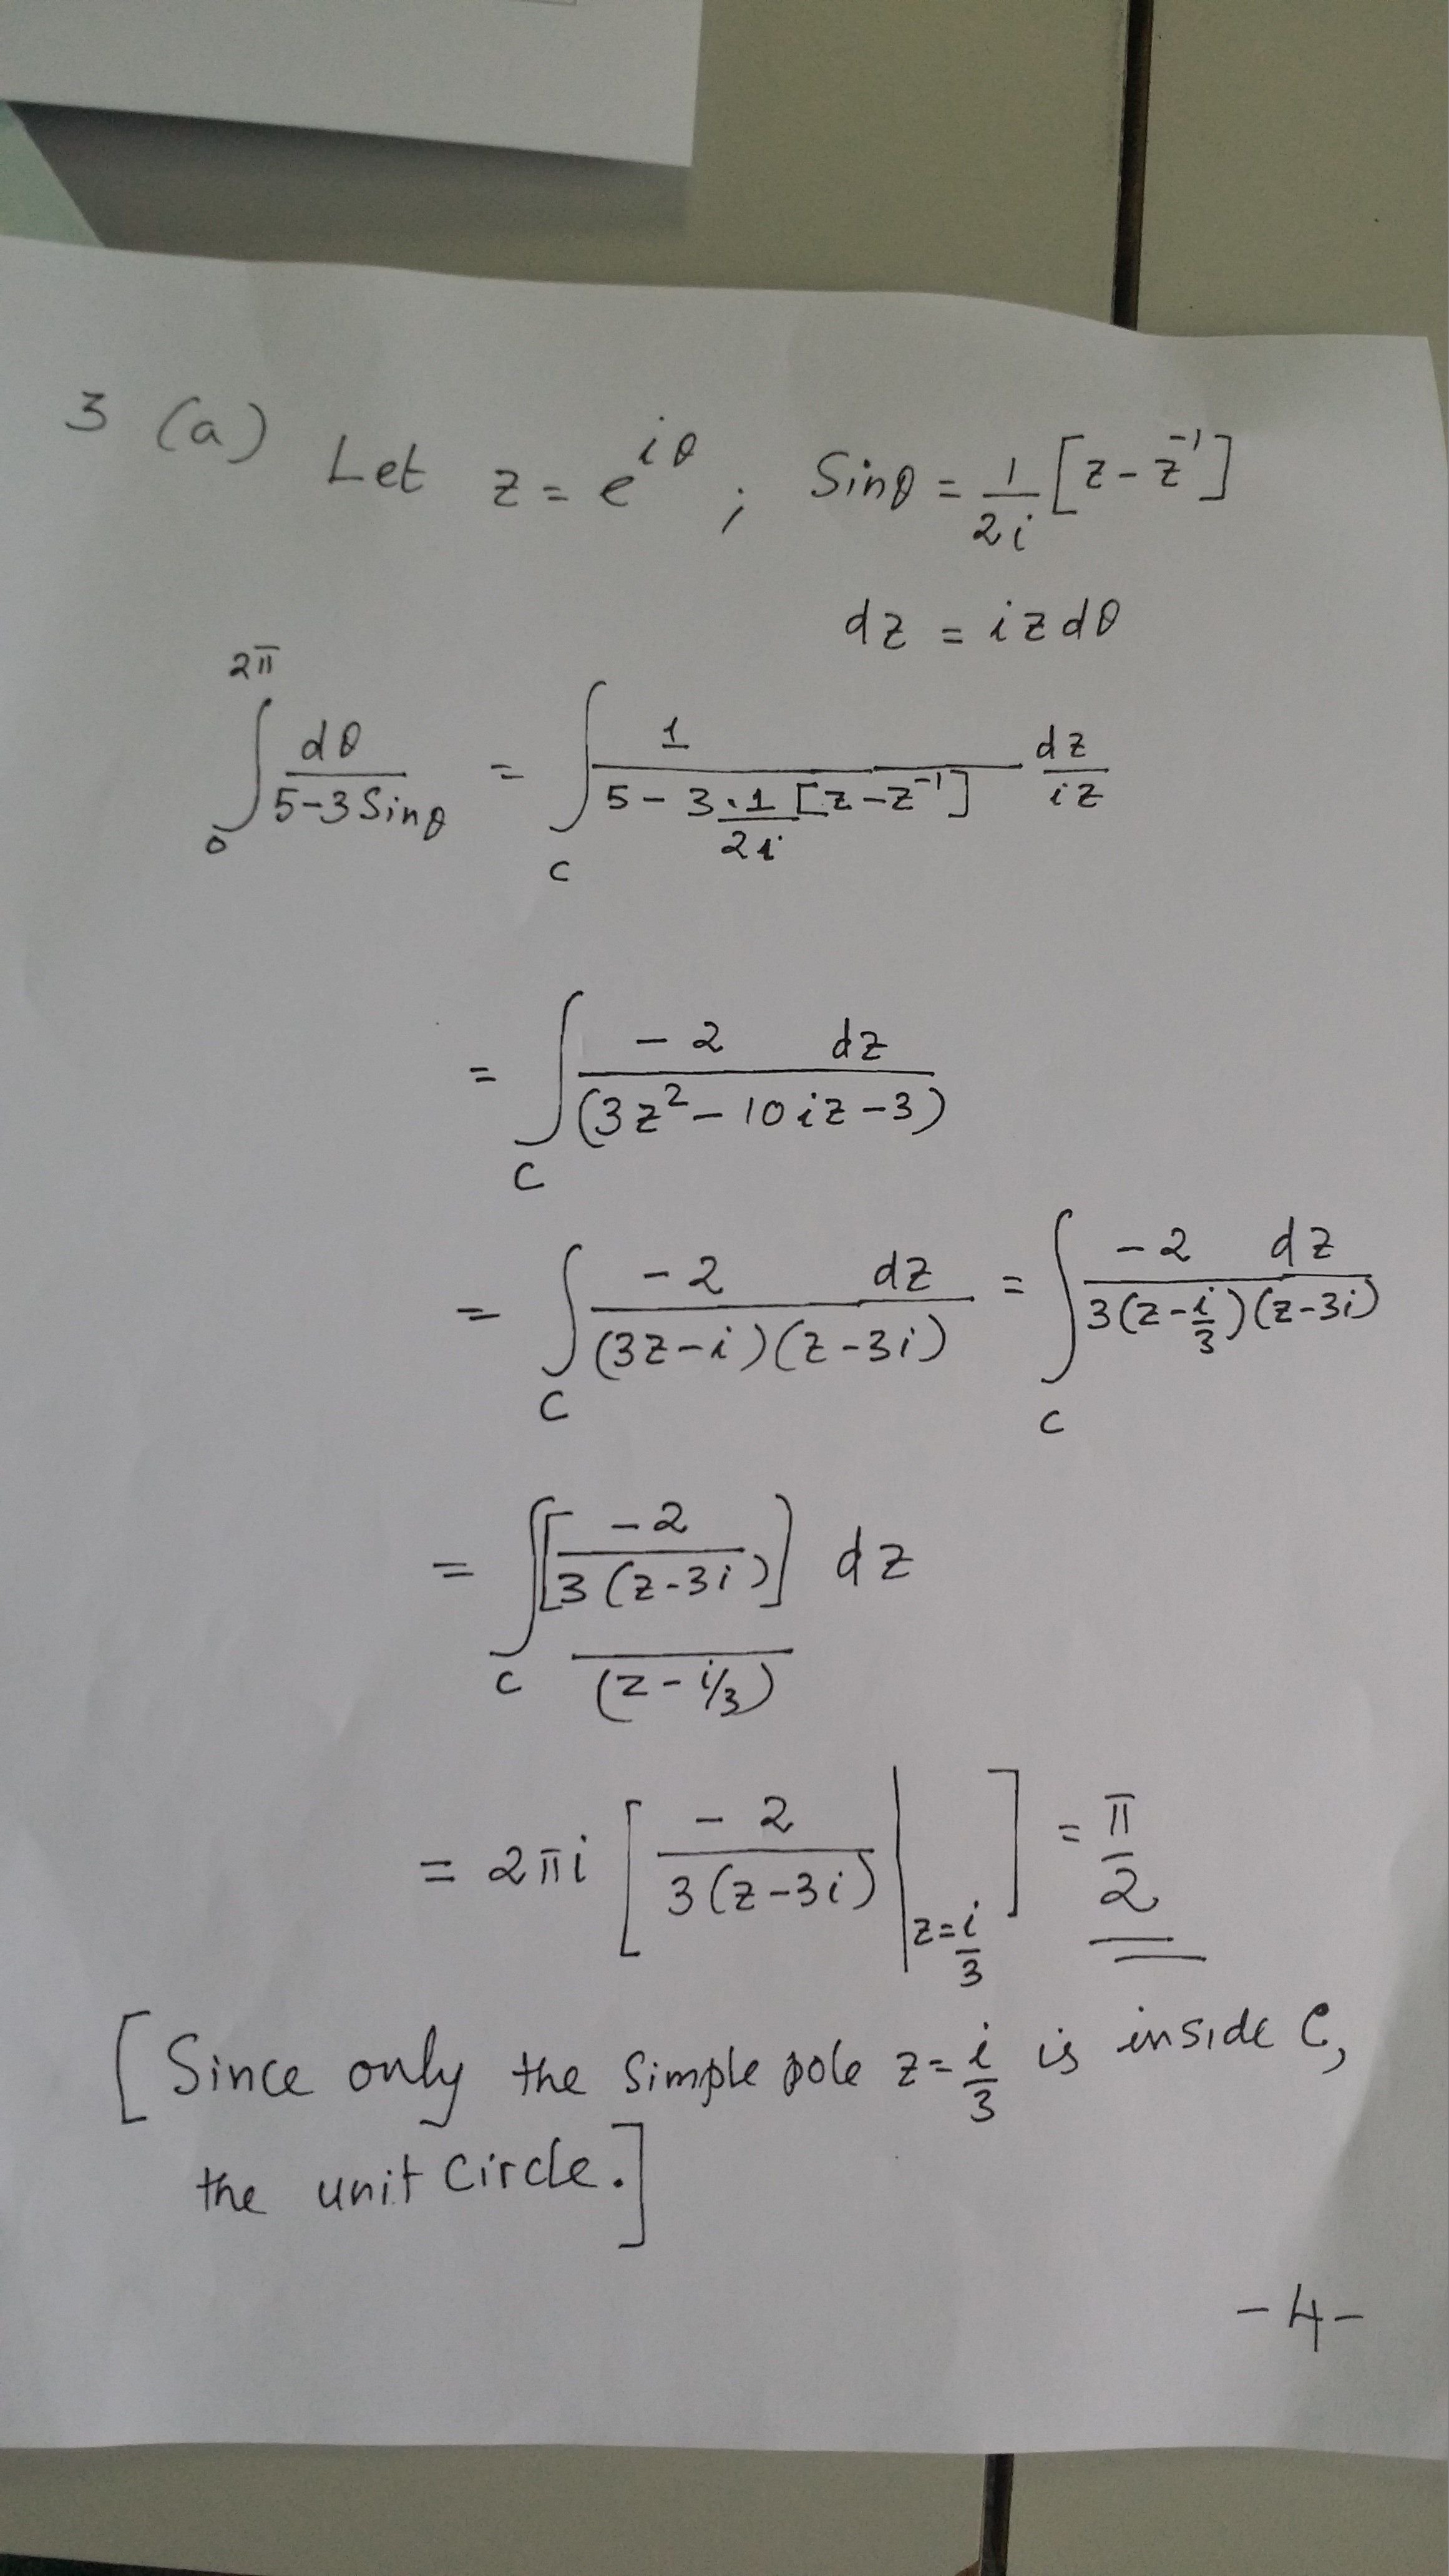 3 (a) Let z = e^{iθ} ; Sinθ = \frac{1}{2i} [z - z^{-1}]
dz = iz dθ
\int_0^{2π} \frac{dθ}{5-3 Sinθ} = \int_C \frac{1}{5 - 3 \cdot \frac{1}{2i} [z - z^{-1}]} \frac{dz}{iz}
= \int_C \frac{-2 dz}{(3z^2 - 10iz - 3)}
= \int_C \frac{-2 dz}{(3z-i)(z-3i)} = \int_C \frac{-2 dz}{3(z-\frac{i}{3})(z-3i)}
= \int_C \frac{[\frac{-2}{3(z-3i)}]}{(z-i/3)} dz
= 2πi [\frac{-2}{3(z-3i)} |_{z=\frac{i}{3}}] = \frac{π}{2}
[Since only the Simple pole z=\frac{i}{3} is inside C,
the unit Circle.]
-4-